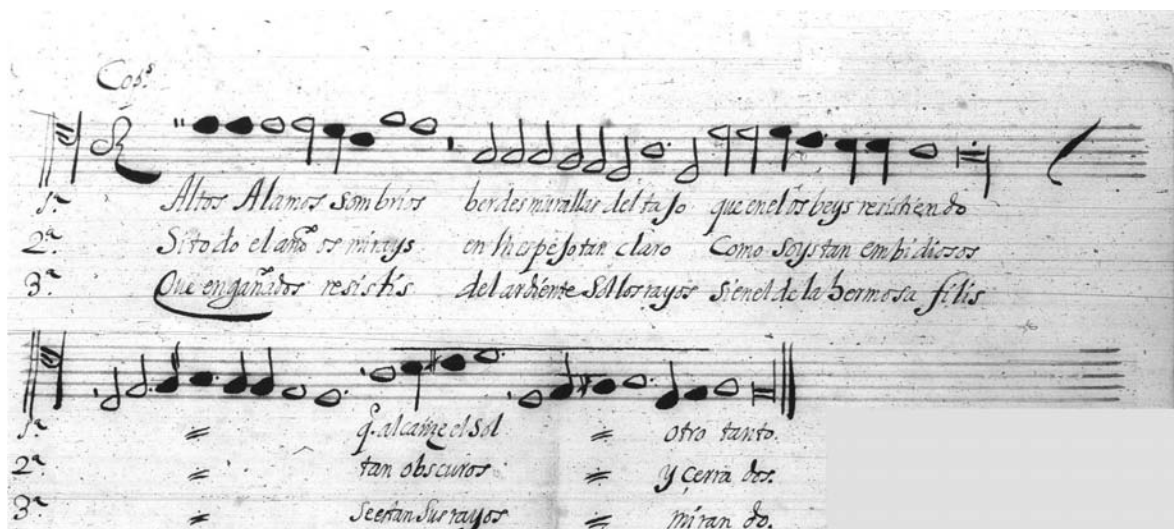 Cops
1ª Altos Alamos sombrios berdes murallas del tajo que en el os beys resistiendo
2ª Si todo el año os mirays en su espejo tan claro Como soys tan embidiosos
3ª Que engañados resistis del ardiente Sol los rayos si en el de la hermosa filis
1ª = q. alcançe el Sol = otro tanto.
2ª = tan obscuros = y çerrados.
3ª = se estan sus rayos = mirando.